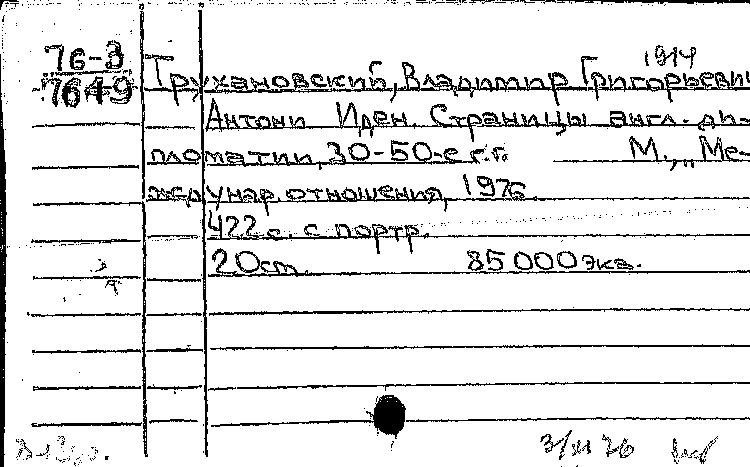 76-3
7649
1914
Трухановский, Владимир Григорьевич
Антони Иден. Страницы англ. ди-
пломатии, 30-50-е г.г. М., „Ме-
ждунар. отношения, 1976.
422 с. с портр.
20 cm. 85000 экз.
3/XI 76